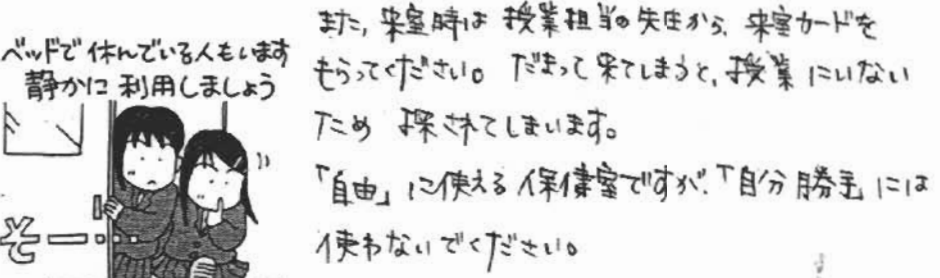 ベッドで休んでいる人もいます
静かに利用しましょう
そーー・・・
また，来室時は授業担当の先生から，来室カードを
もらってください。だまって来てしまうと，授業にいない
ため探されてしまいます。
「自由」に使える保健室ですが，「自分勝手」には
使わないでください。